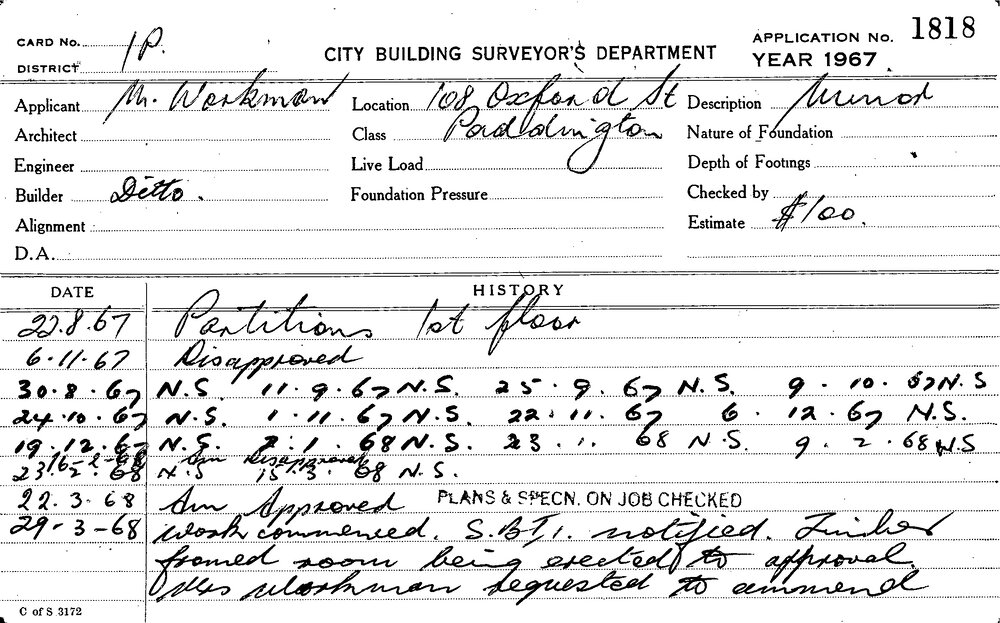 CARD No. 1P.
DISTRICT
CITY BUILDING SURVEYOR'S DEPARTMENT
APPLICATION No. 1818
YEAR 1967
Applicant M. Workman Location 108 Oxford St Description Minor
Architect Class Paddington Nature of Foundation
Engineer Live Load Depth of Footings
Builder Ditto. Foundation Pressure Checked by
Alignment Estimate $100.
D.A.
DATE HISTORY
22.8.67 Partitions 1st floor
6.11.67 Disapproved
30.8.67 N.S. 11.9.67 N.S. 25.9.67 N.S. 9.10.67 N.S
24.10.67 N.S. 1.11.67 N.S. 22.11.67 6.12.67 N.S.
19.12.67 N.S. 2.1.68 N.S. 23.1.68 N.S. 9.2.68 N.S
16-2-68 Am Disapproved
23.2.68 N.S 15.3.68 N.S.
22.3.68 Am Approved PLANS & SPECN. ON JOB CHECKED
29-3-68 Work commenced. S.B.I. notified. Timber
framed room being erected to approval.
Mrs Workman requested to ammend
C of S 3172